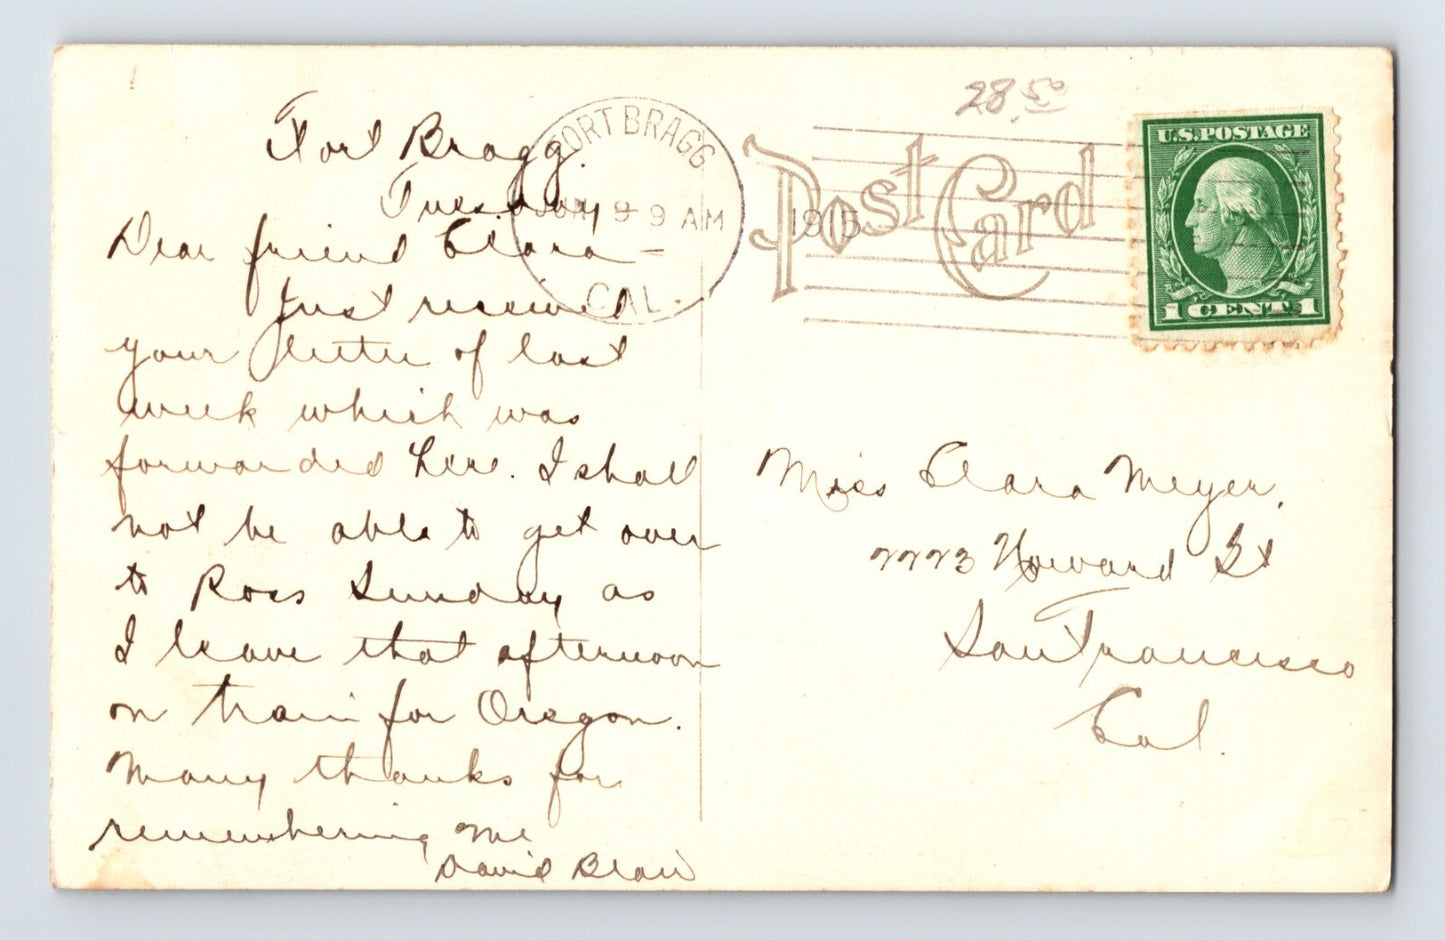 Fort Bragg.
Tuesday
Dear friend Clara
Just received
your letter of last
week which was
forwarded here. I shall
not be able to get over
to Ross Sunday as
I leave that afternoon
on train for Oregon.
Many thanks for
remembering me
David Blair
FORT BRAGG
9 9 AM
1915
CAL.
28.50
Post Card
U.S. POSTAGE
1 CENT 1
Miss Clara Meyer,
2223 Howard St
San Francisco
Cal.